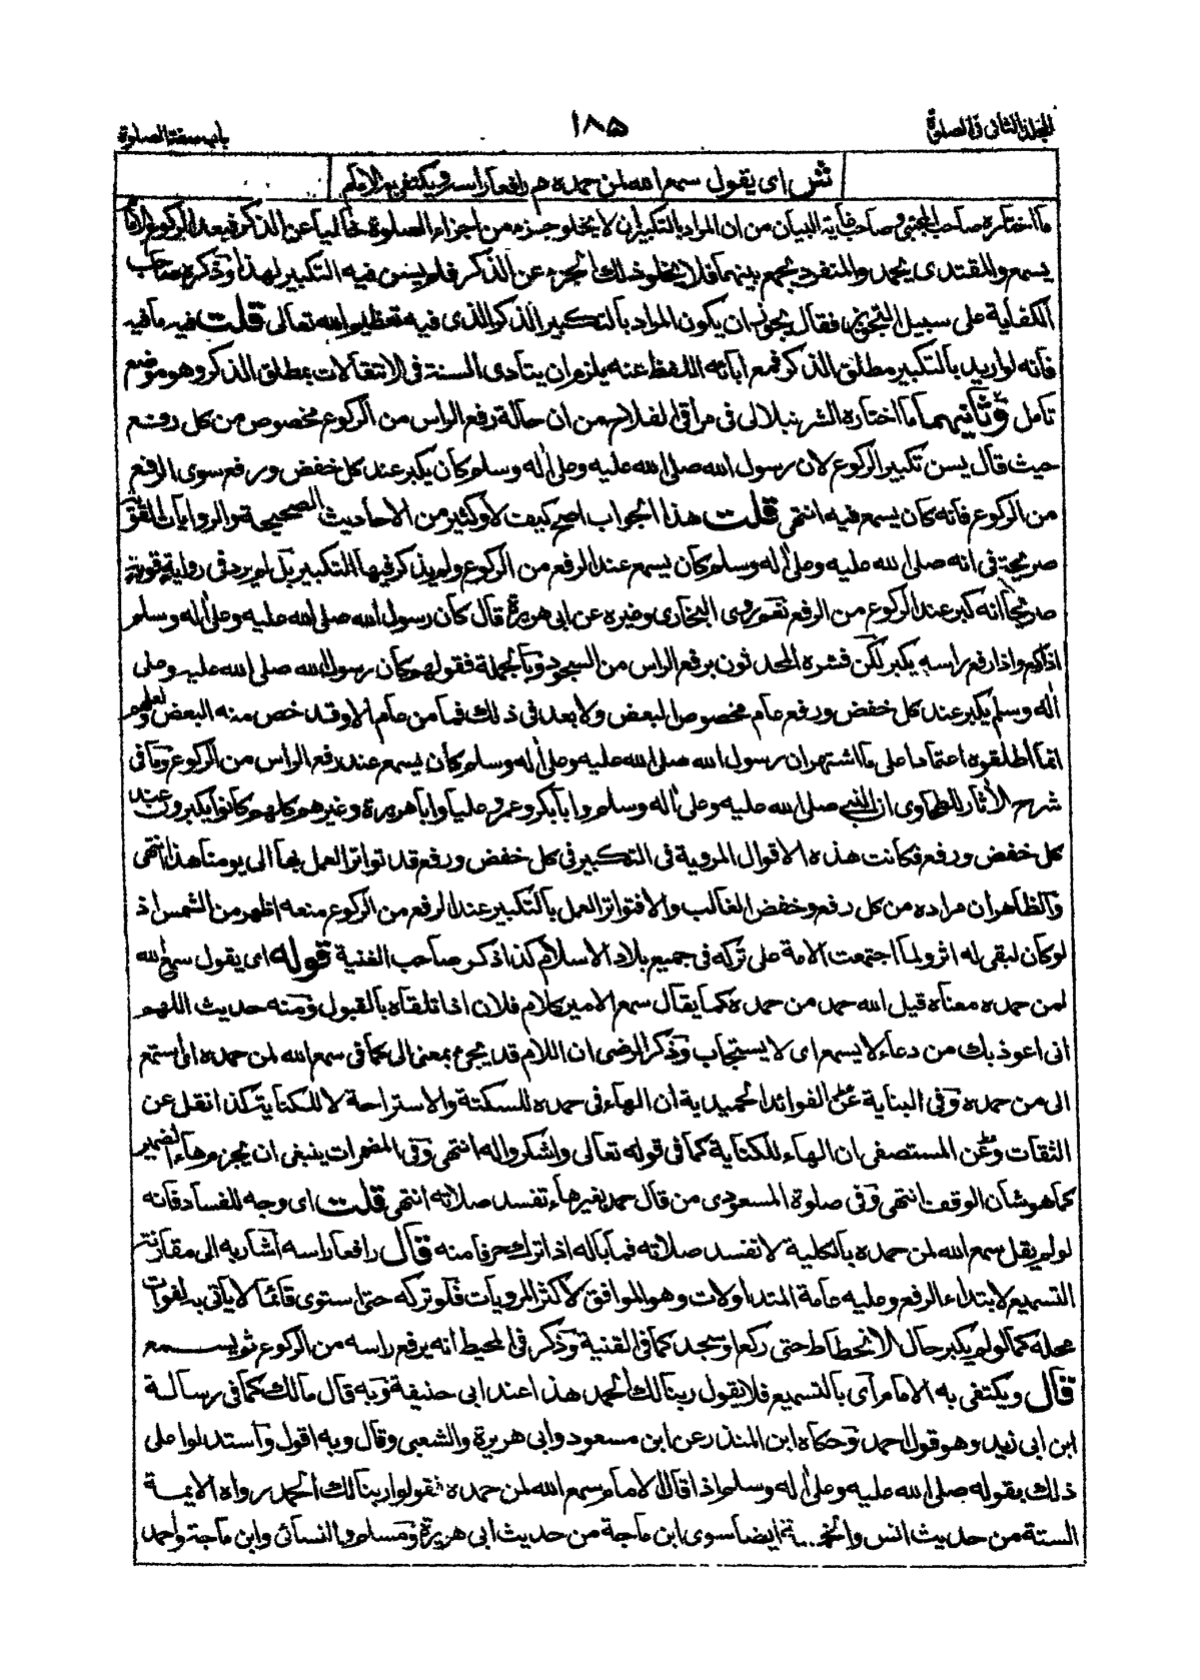 المجلد الثانی فی الصلوة
۱۸۵
باب صفة الصلوة
ش ای یقول سمع الله لمن حمده م رافعا راسه و یکتفی به الامام
ما اختاره صاحب المجتبی و صاحب غایة البیان من ان المراد بالتکبیر ان لا یخلو جزء من اجزاء الصلوة خالیا عن الذکر فبعد الرکوع الامام
یسمع والمقتدی یحمد والمنفرد یجمع بینهما فلا یخلو ذلک الجزء عن الذکر فلم یسن فیه التکبیر لهذا وذکره صاحب
الکفایة علی سبیل التجویز فقال یجوز ان یکون المراد بالتکبیر الذکر الذی فیه تعظیم الله تعالی قلت فیه ما فیه
فانه لو ارید بالتکبیر مطلق الذکر فمع اباته اللفظ عنه یلزم ان یتادی السنة فی الانتقالات بمطلق الذکر وهو موضع
تامل وثانیهما ما اختاره الشرنبلالی فی مراقی الفلاح من ان حالة رفع الراس من الرکوع مخصوص من کل رفع
حیث قال یسن تکبیر الرکوع لان رسول الله صلی الله علیه وعلی اله وسلم کان یکبر عند کل خفض ورفع سوی الرفع
من الرکوع فانه کان یسمع فیه انتهی قلت هذا الجواب اصح کیف لا وکثیر من الاحادیث الصحیحة والروایات القویة
صریحة فی انه صلی الله علیه وعلی اله وسلم کان یسمع عند الرفع من الرکوع ولم یذکر فیها التکبیر بل لم یرد فی روایة قویة
صریحا انه کبر عند الرکوع من الرفع نعم روی البخاری وغیره عن ابی هریرة قال کان رسول الله صلی الله علیه وعلی اله وسلم
اذا رکع واذا رفع راسه یکبر لکن فسره المحدثون برفع الراس من السجود وبالجملة فقولهم کان رسول الله صلی الله علیه وعلی
اله وسلم یکبر عند کل خفض ورفع عام مخصوص البعض ولا بعد فی ذلک فما من عام الا وقد خص منه البعض ولعلهم
انما اطلقوه اعتمادا علی ما اشتهر ان رسول الله صلی الله علیه وعلی اله وسلم کان یسمع عند رفع الراس من الرکوع وما فی
شرح الاثار للطحاوی ان النبی صلی الله علیه وعلی اله وسلم وابا بکر وعمر وعلیا وابا هریرة وغیرهم کلهم کانوا یکبرون عند
کل خفض ورفع فکانت هذه الاقوال المرویة فی التکبیر فی کل خفض ورفع قد تواتر العمل بها الی یومنا هذا انتهی
فالظاهر ان مراده من کل رفع وخفض الغالب والا فتواتر العمل بالتکبیر عند الرفع من الرکوع منعه اظهر من الشمس اذ
لو کان لبقی له اثر ولما اجتمعت الامة علی ترکه فی جمیع بلاد الاسلام کذا ذکر صاحب الغنیة قوله ای یقول سمع الله
لمن حمده معناه قبل الله حمد من حمده کما یقال سمع الامیر کلام فلان اذا تلقاه بالقبول ومنه حدیث اللهم
انی اعوذ بک من دعاء لا یسمع ای لا یستجاب وذکر الرضی ان اللام قد یجئ بمعنی الی کما فی سمع الله لمن حمده ای استمع
الی من حمده وفی البنایة عن الفوائد الحمیدیة ان الهاء فی حمده للسکتة والاستراحة لا للکنایة کذا نقل عن
الثقات وعن المستصفی ان الهاء للکنایة کما فی قوله تعالی واشکروا له انتهی وفی المضمرات ینبغی ان یجزم هاء الضمیر
کما هو شان الوقف انتهی وفی صلوة المسعودی من قال حمد بغیر هاء تفسد صلاته انتهی قلت ای وجه للفساد فانه
لو لم یقل سمع الله لمن حمده بالکلیة لا تفسد صلاته فما باله اذا ترک حرفا منه قال رافعا راسه اشار به الی مقارنة
التسمیع لابتداء الرفع وعلیه عامة المتداولات وهو الموافق لاکثر المرویات فلو ترکه حتی استوی قائما لا یاتی به لفوات
محله کما لو لم یکبر حال الانحطاط حتی رکع او سجد کما فی القنیة وذکر فی المحیط انه یرفع راسه من الرکوع ثم یسمع
قال ویکتفی به الامام ای بالتسمیع فلا یقول ربنا لک الحمد هذا عند ابی حنیفة وبه قال مالک کما فی رسالة
ابن ابی زید وهو قول احمد وحکاه ابن المنذر عن ابن مسعود وابی هریرة والشعبی وقال وبه اقول واستدلوا علی
ذلک بقوله صلی الله علیه وعلی اله وسلم اذا قال الامام سمع الله لمن حمده فقولوا ربنا لک الحمد رواه الایمة
الستة من حدیث انس ایضا سوی ابن ماجة من حدیث ابی هریرة ومسلم والنسائی وابن ماجة واحمد